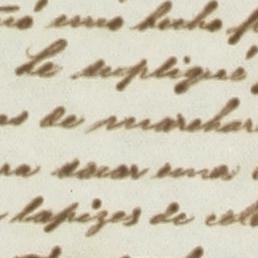 uno hucho
Le supliqué
de marchar
ra sacar una
lapizes de col